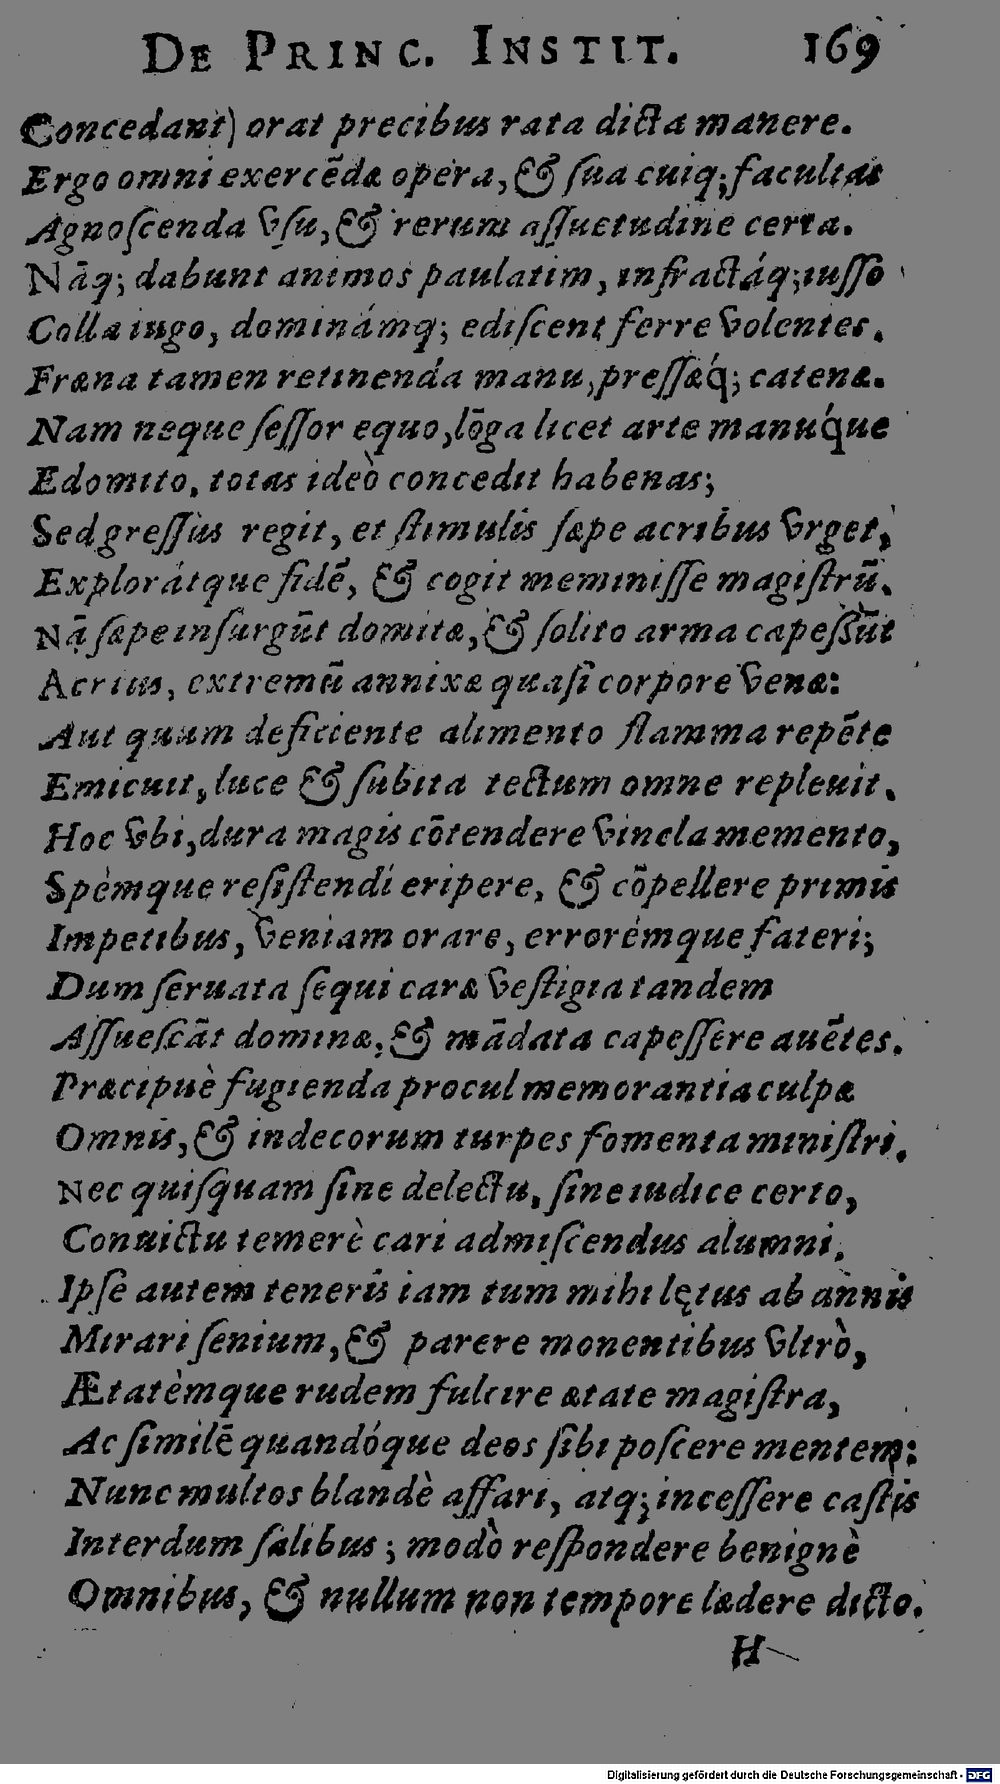 DE PRINC. INSTIT. 169
Concedant) orat precibus rata dicta manere.
Ergo omni exercēda opera, & ſua cuiq; facultas
Agnoſcenda vſu, & rerum aſſuetudine certa.
Nāq; dabunt animos paulatim, infractáq; iuſſo
Colla iugo, dominámq; ediſcent ferre volentes.
Fræna tamen retinenda manu, preſſæq́; catenæ.
Nam neque ſeſſor equo, lōga licet arte manuq́ue
Edomito, totas ideò concedit habenas;
Sed greſſus regit, et ſtimulis ſæpe acribus vrget,
Explorátque fidē, & cogit meminiſſe magiſtrū.
Nā ſæpe inſurgūt domitæ, & ſolito arma capeſſūt
Acrius, extremū annixæ quaſi corpore venæ:
Aut quum deficiente alimento flamma repēte
Emicuit, luce & ſubita tectum omne repleuit.
Hoc vbi, dura magis cōtendere vincla memento,
Spémque reſiſtendi eripere, & cōpellere primis
Impetibus, veniam orare, errorémque fateri;
Dum ſeruata ſequi caræ veſtigia tandem
Aſſueſcāt dominæ, & mādata capeſſere auētes.
Præcipuè fugienda procul memorantia culpæ
Omnis, & indecorum turpes fomenta miniſtri.
Nec quiſquam ſine delectu, ſine iudice certo,
Conuictu temerè cari admiſcendus alumni.
Ipſe autem teneris iam tum mihi lętus ab annis
Mirari ſenium, & parere monentibus vltrò,
Ætatèmque rudem fulcire ætate magiſtra,
Ac ſimilē quandóque deos ſibi poſcere mentem:
Nunc multos blandè affari, atq; inceſſere caſtis
Interdum ſalibus; modò reſpondere benignè
Omnibus, & nullum non tempore lædere dicto.
H
Digitalisierung gefördert durch die Deutsche Forschungsgemeinschaft - DFG